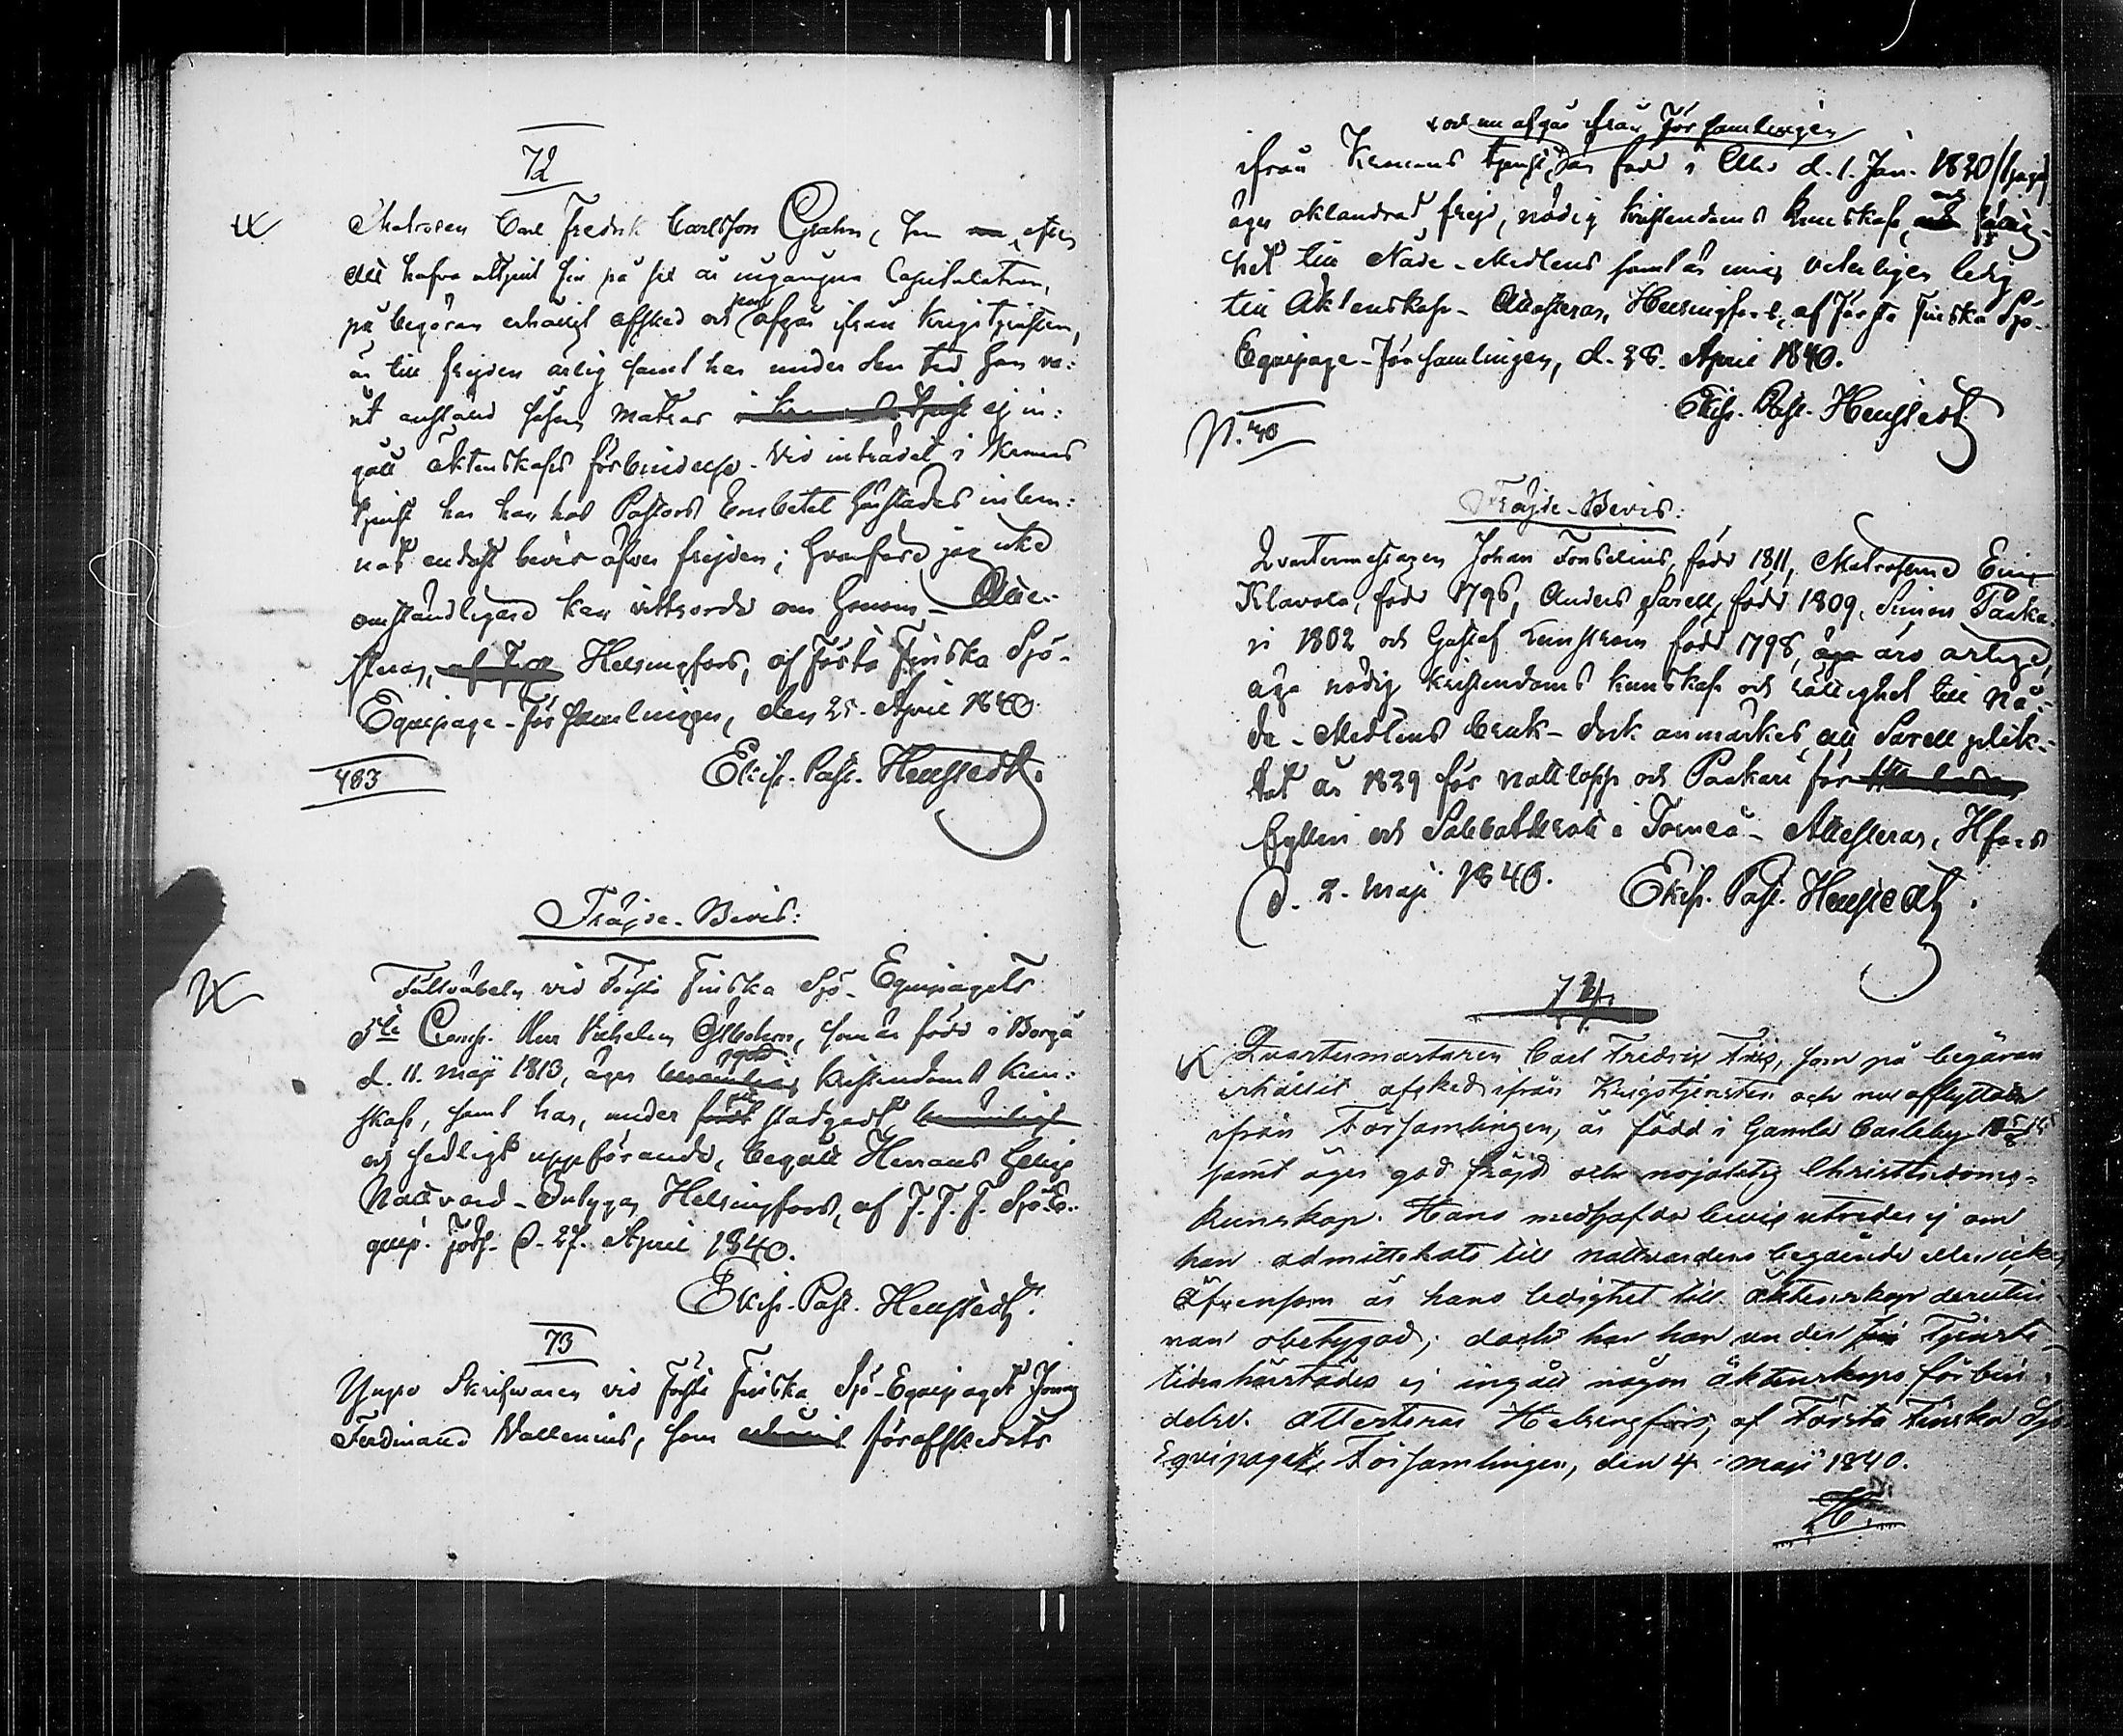 72
Matrosen Carl Fredrik Carlsson Grahn, som nu, efter
att hafva uttjent sin på sex år ingångna Capitulation,
på begäran erhållit afsked och afgår ifrån Krigstjensten,
är till frejden ärlig samt har under den tid han va:
rit anställd såsom Matros i Kronans tjenst ej in:
gått äktenskaps förbindelse. Vid inträdet i Kronans
tjenst har han hos Pastors Embetet härstädes inlem:
nat endast bevis öfver frejden; hvarföre jag icke
omständligare kan vittsorda om honom – Atte-
steras, Helsingfors, af Första Finska Sjö-
Equipage-Församlingen, den 25. April 1840.
Ekip. Past. Hougstedt.
483
Fräjde-Bevis:
Fältväbeln vid Första Finska Sjö-Equipagets
5te Comp. Herr Vilhelm, som är född i Borgå
d. 11. Maji 1813, äger god Kristendoms kun:
skap, samt har, under stadgadt
och sedligt uppförande, begått Herrans Helige
Nattvard – Betygar, Helsingfors, af F. F. F. Sjö-E:
quip. Förs. d. 27. April 1840.
Ekip. Past. Hougstedt.
73
Yngre Skrifvaren vid Första Finska Sjö-Equipaget Jonas
Ferdinand Wallenius, som erhållit förafskedats
och nu afgår ifrån Församlingen
ifrån Kronans tjenst, är född i Åbo d. 1. Jan. 1820
äger oklandrad frejd, nödig kristendoms kunskap, och rättig-
het till Nåde-Medlens samt är mig veterligen ledig
till Äktenskap – Attesteras, Helsingfors, af Första Finska Sjö-
Equipage-Församlingen, d. 28. April 1840.
Ekip. Past. Hougstedt
N. 40
Fräjde-Bevis:
Qvartermästaren Johan Fonselius, född 1811, Matroserne
Klavola, född 1796, Anders Sarell, född 1809, Simon Paaka-
ri 1802 och Gustaf född 1798, äro ärlige,
äga nödig kristendoms kunskap och rättighet till Nå-
de-Medlens bruk – dock anmärkes, att Sarell plik-
tat år 1829 för nattlopp och Paakari för
fylleri och Sabbatsbrott i Torneå – Attesteras, Hfors
d. 2. Maji 1840. Ekip. Past. Hougstedt.
74.
Qvartermästaren Carl Fredrik, som på begäran
erhållit afsked ifrån Krigstjensten och nu afflyttar
ifrån Församlingen, är född i Gamla Carleby
samt äger god fräjd och nöjaktig Christendoms-
kunskap. Hans medhafda bevis utreder ej om
han admitterats till nattvardens begående eller icke,
äfvensom är hans ledighet till äktenskap derutin-
nan obetygad; dock har han under tjenste-
tiden härstädes ej ingått någon äktenskaps förbin-
delse. Attesteras Helsingfors, af Första Finska Sjö
Equipagets Församlingen, den 4 maji 1840.
H.